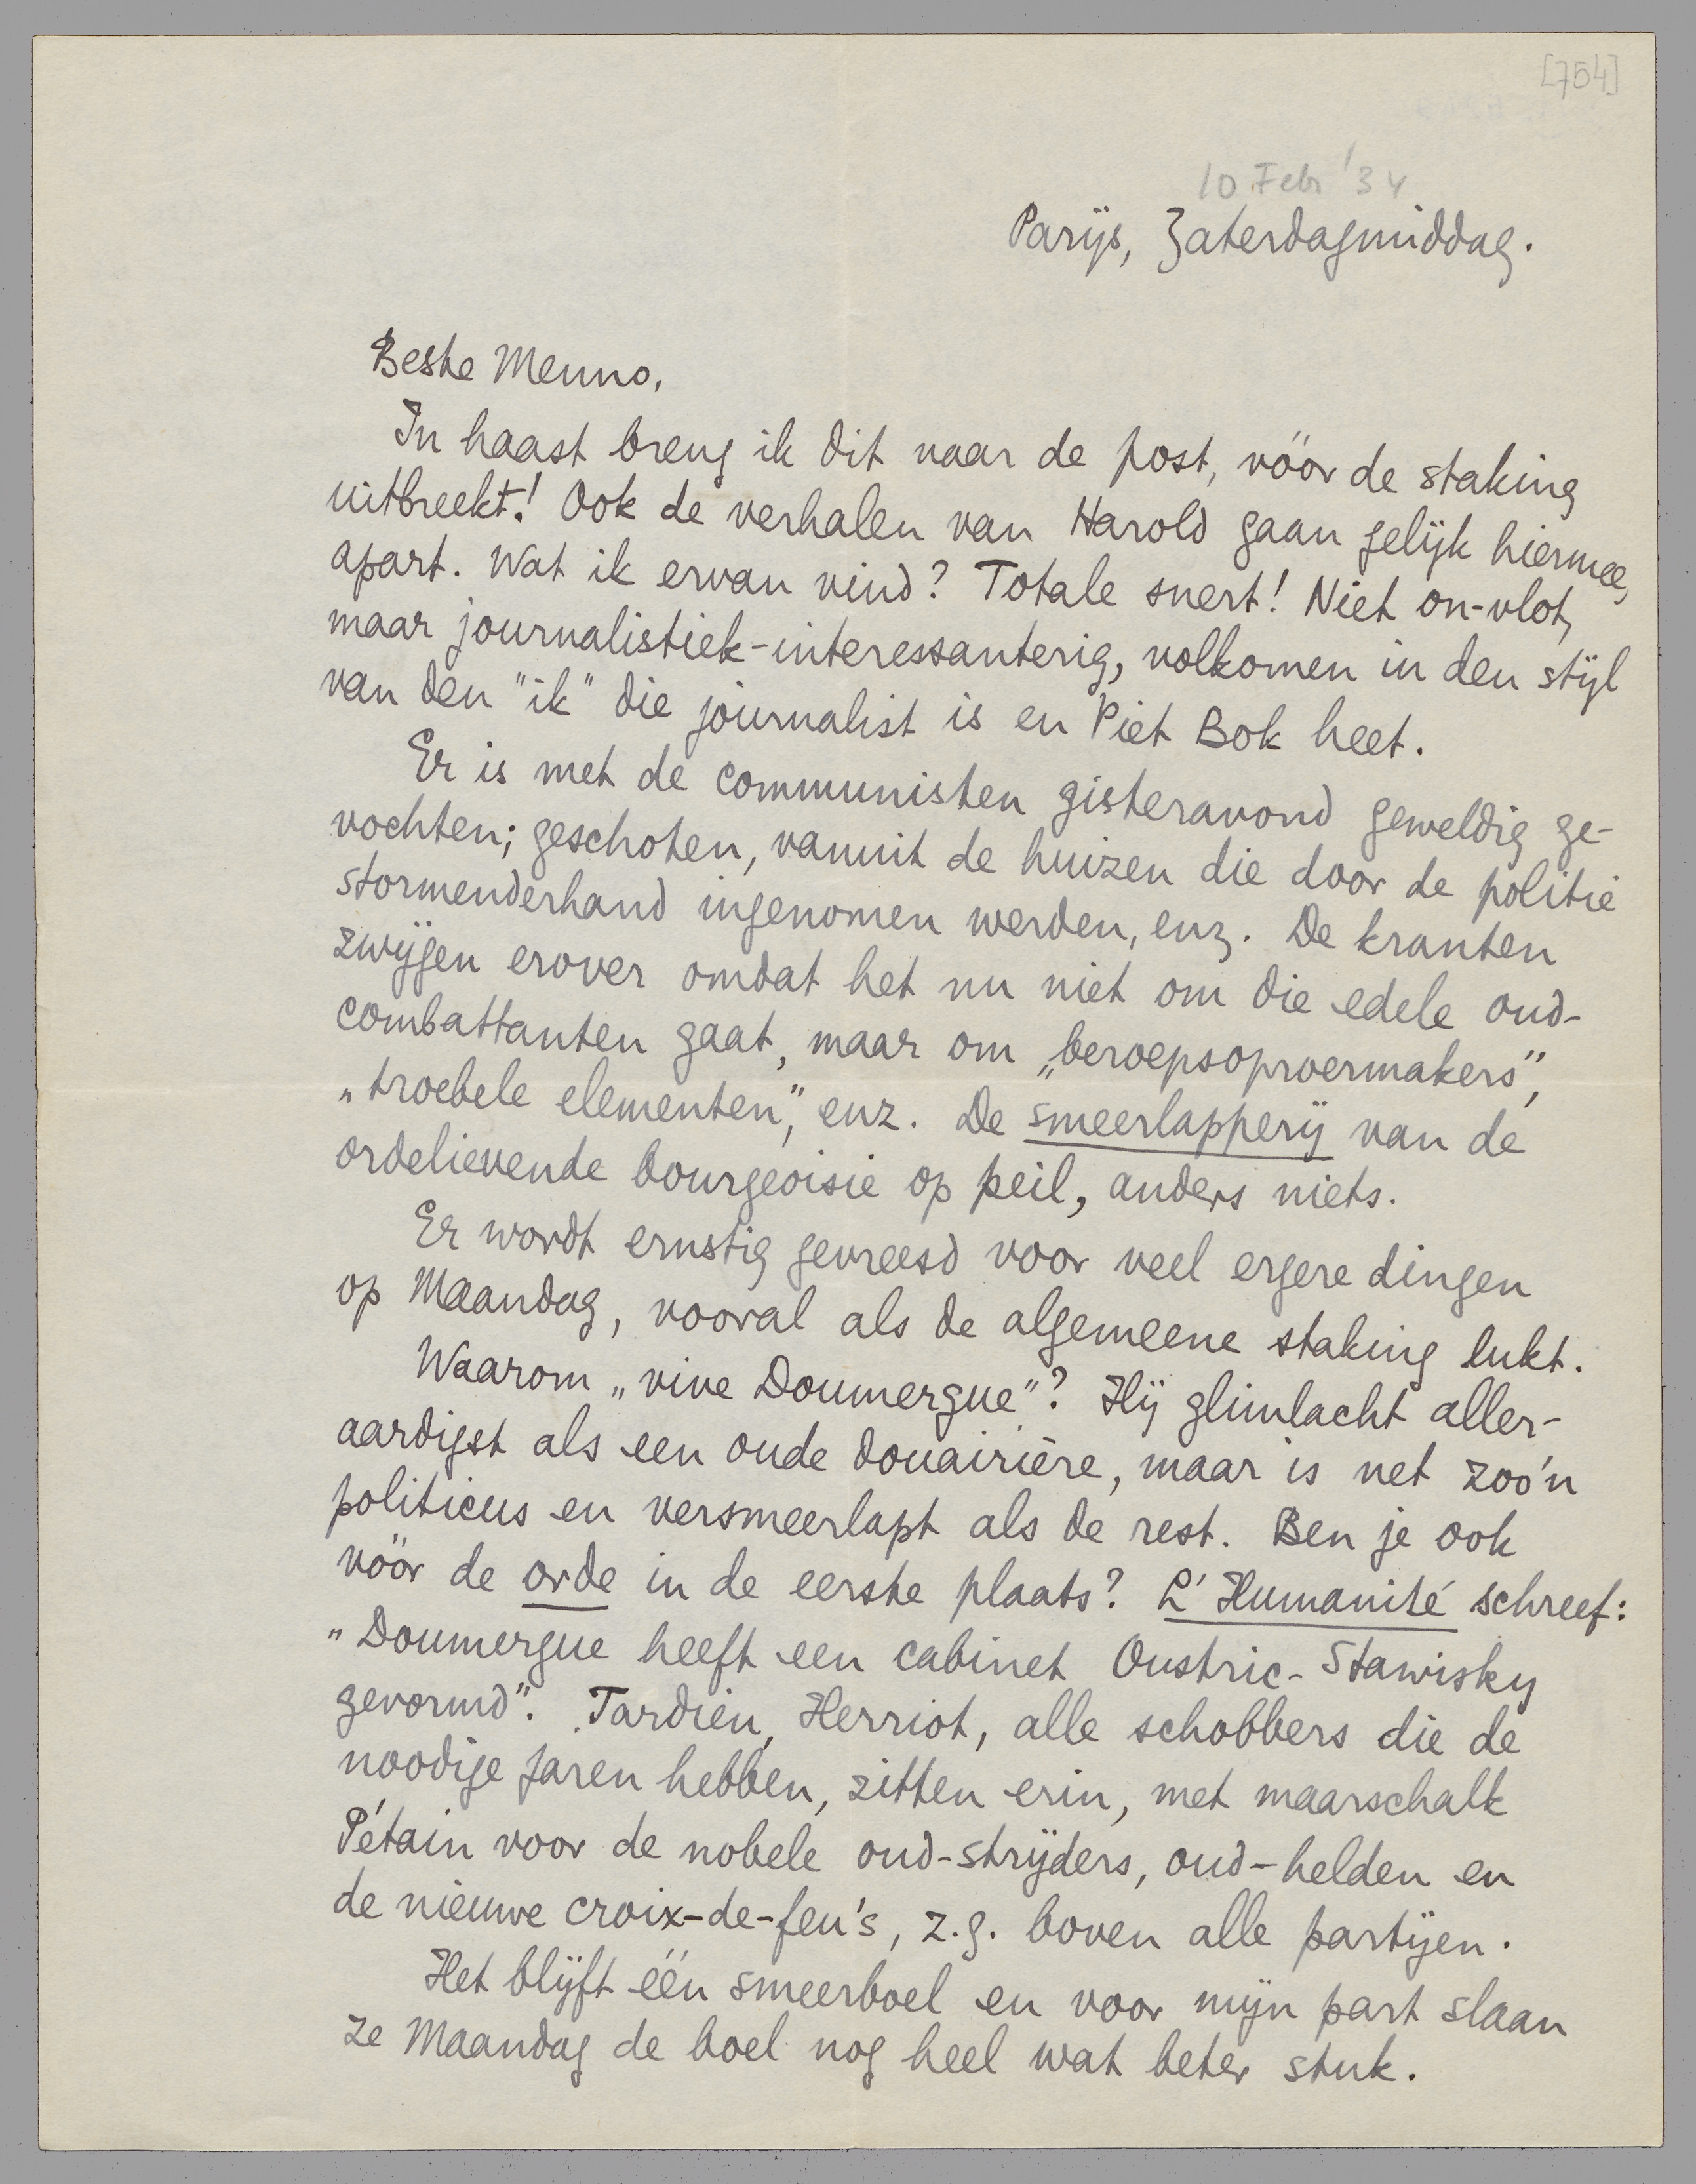 [754]
10 Febr '34
Parijs, Zaterdagmiddag.
Beste Menno,
In haast breng ik dit naar de post, vóór de staking
uitbreekt! Ook de verhalen van Harold gaan gelijk hiermee,
apart. Wat ik ervan vind? Totale snert! Niet on-vlot,
maar journalistiek-interessanterig, volkomen in den stijl
van den "ik" die journalist is en Piet Bok heet.
Er is met de communisten gisteravond geweldig ge-
vochten; geschoten, vanuit de huizen die door de politie
stormenderhand ingenomen werden, enz. De kranten
zwijgen erover omdat het nu niet om die edele oud-
combattanten gaat, maar om „beroepsoproermakers",
„troebele elementen," enz. De smeerlapperij van de
ordelievende bourgeoisie op peil, anders niets.
Er wordt ernstig gevreesd voor veel ergere dingen
op Maandag, vooral als de algemeene staking lukt.
Waarom „vive Doumergue"? Hij glimlacht aller-
aardigst als een oude douairière, maar is net zoo'n
politicus en versmeerlapt als de rest. Ben je ook
vóór de orde in de eerste plaats? L'Humanité schreef:
„Doumergue heeft een cabinet Oustric-Stawisky
gevormd". Tardieu, Herriot, alle schobbers die de
noodige jaren hebben, zitten erin, met maarschalk
Pétain voor de nobele oud-strijders, oud-helden en
de nieuwe croix-de-feu's, z.g. boven alle partijen.
Het blijft één smeerboel en voor mijn part slaan
ze Maandag de boel nog heel wat beter stuk.